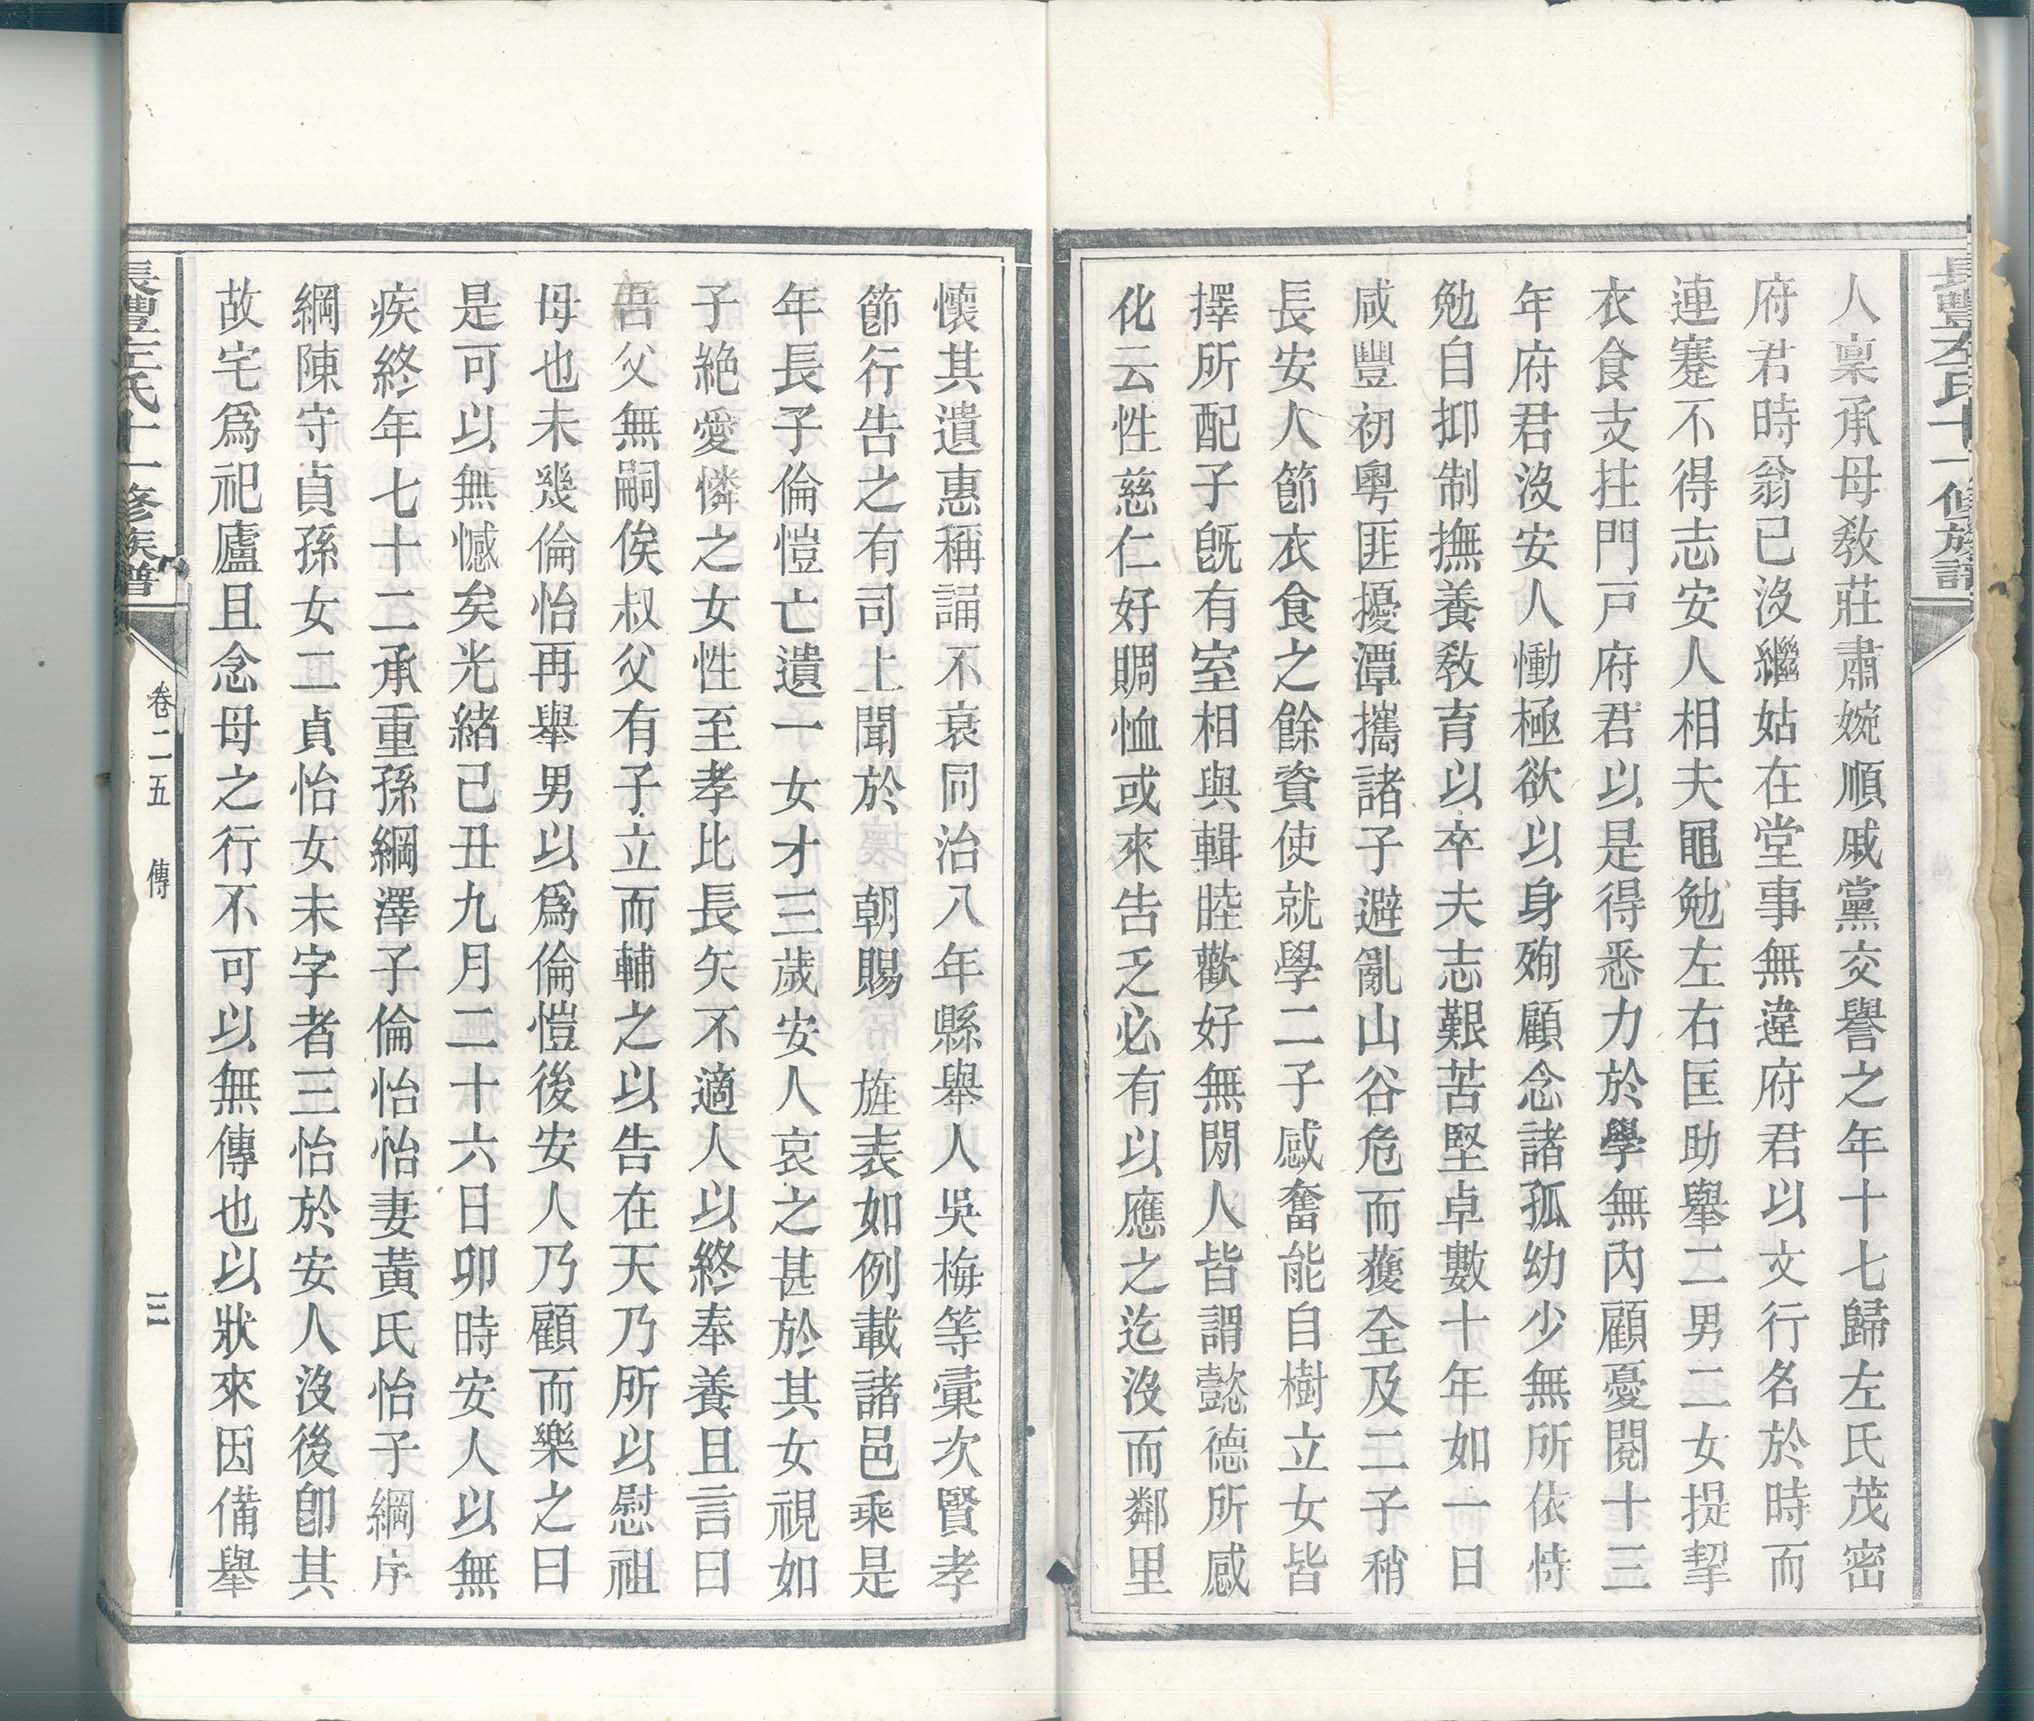 長豐左氏十一修族譜
人稟承母教莊肅婉順戚黨交譽之年十七歸左氏茂密
府君時翁已沒繼姑在堂事無違府君以文行名於時而
連蹇不得志安人相夫黽勉左右匡助舉二男二女提挈
衣食支拄門戸府君以是得悉力於學無內顧憂閱十三
年府君沒安人慟極欲以身殉顧念諸孤幼少無所依恃
勉自抑制撫養教育以卒夫志艱苦堅卓數十年如一日
咸豐初粵匪擾潭攜諸子避亂山谷危而獲全及二子稍
長安人節衣食之餘資使就學二子感奮能自樹立女皆
擇所配子旣有室相與輯睦歡好無閒人皆謂懿德所感
化云性慈仁好賙恤或來告乏必有以應之迄沒而鄰里
懷其遺惠稱誦不衰同治八年縣舉人吳梅等彙次賢孝
節行告之有司上聞於　朝賜　旌表如例載諸邑乘是
年長子倫愷亡遺一女才三歲安人哀之甚於其女視如
子絶愛憐之女性至孝比長矢不適人以終奉養且言曰
吾父無嗣俟叔父有子立而輔之以告在天乃所以慰祖
母也未幾倫怡再舉男以爲倫愷後安人乃顧而樂之曰
是可以無憾矣光緒己丑九月二十六日卯時安人以無
疾終年七十二承重孫綱澤子倫怡怡妻黃氏怡子綱序
綱陳守貞孫女二貞怡女未字者三怡於安人沒後卽其
故宅爲祀廬且念母之行不可以無傳也以狀來因備舉
長豐左氏十一修族譜
卷二五　傳
三